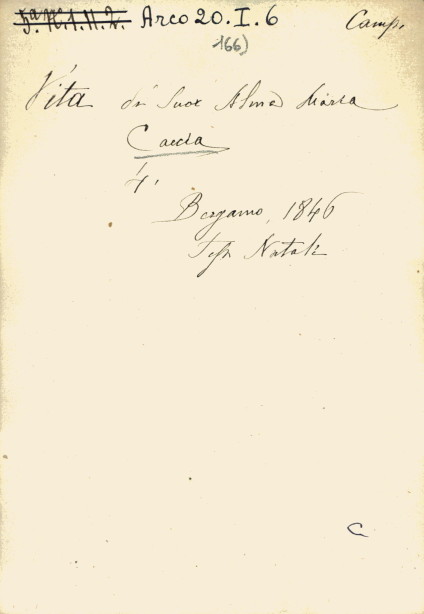 Arco 20. I. 6
Camp.
166)
Vita di Suor Alma Maria
Caccia
4.
Bergamo, 1846
Natali
C